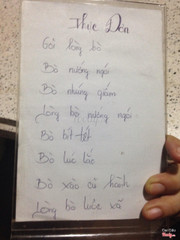 Thực Đơn
Gỏi lòng bò
Bò nướng ngói
Bò nhúng giấm
Lòng bò nướng ngói
Bò bít-tết
Bò lúc lắc
Bò xào củ hành
Lòng bò luộc xả